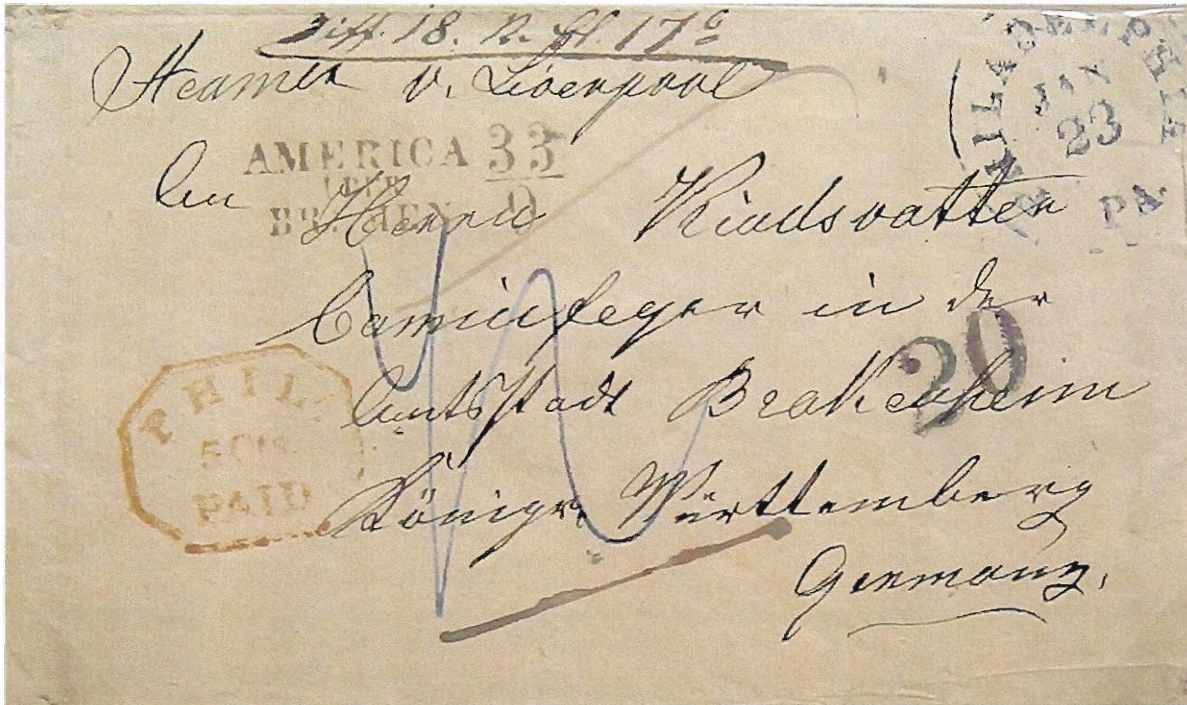 Diff. 18. N. fl. 17
Steamer v. Liverpool
PHILADELPHIA
JAN
23
PA.
AMERICA 33
UBER
BREMEN
An Herrn Kindsvatter
Caminfeger in der
Amtsstadt Brakenheim
20
PHILA
5 CTS
PAID
Königr. Württemberg
Germany.